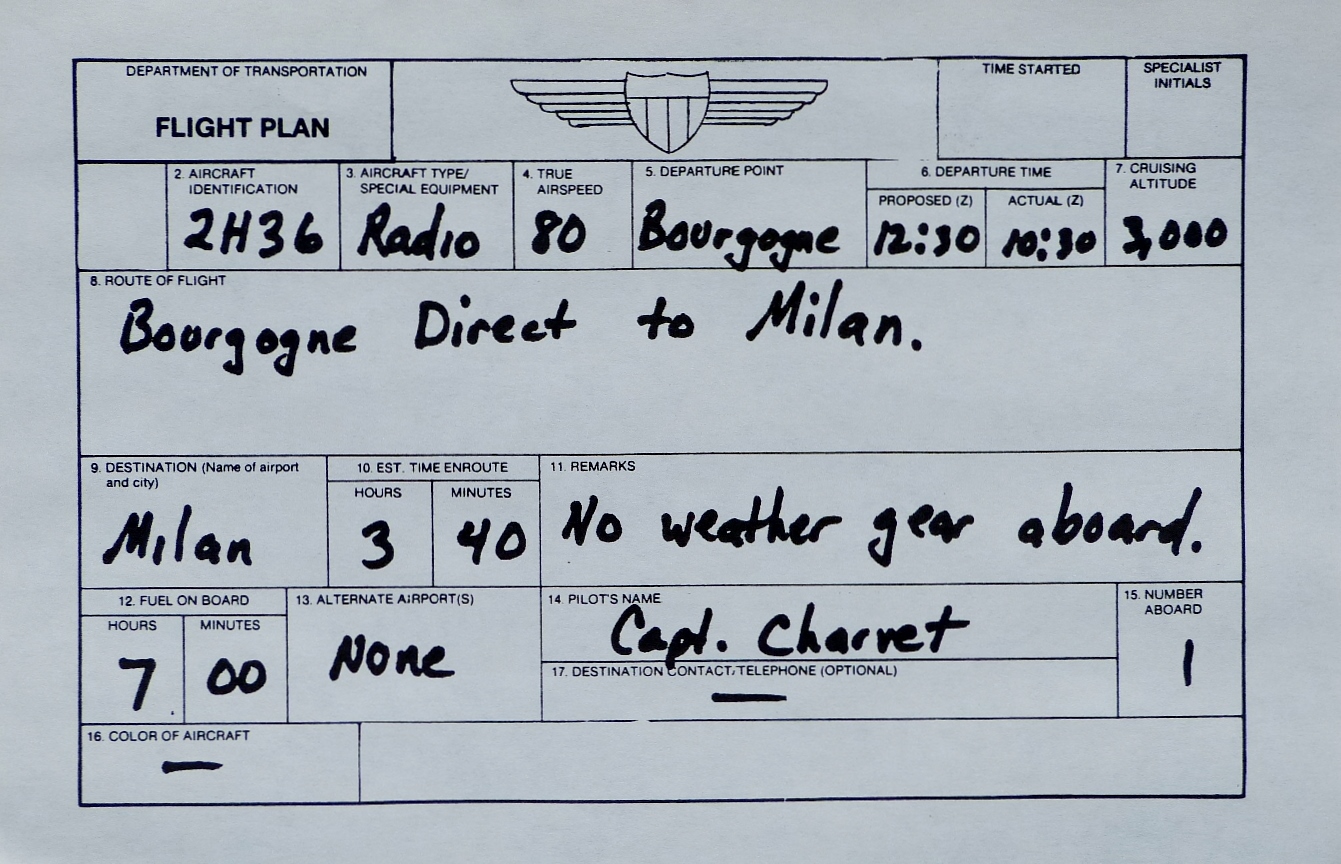 DEPARTMENT OF TRANSPORTATION
FLIGHT PLAN
TIME STARTED
SPECIALIST
INITIALS
2. AIRCRAFT
IDENTIFICATION
2H36
3. AIRCRAFT TYPE/
SPECIAL EQUIPMENT
Radio
4. TRUE
AIRSPEED
80
5. DEPARTURE POINT
Bourgogne
6. DEPARTURE TIME
PROPOSED (Z)
12:30
ACTUAL (Z)
10:30
7. CRUISING
ALTITUDE
3,000
8. ROUTE OF FLIGHT
Bourgogne Direct to Milan.
9. DESTINATION (Name of airport
and city)
Milan
10. EST. TIME ENROUTE
HOURS
3
MINUTES
40
11. REMARKS
No weather gear aboard.
12. FUEL ON BOARD
HOURS
7
MINUTES
00
13. ALTERNATE AIRPORT(S)
None
14. PILOT'S NAME
Capt. Charvet
17. DESTINATION CONTACT/TELEPHONE (OPTIONAL)
—
15. NUMBER
ABOARD
1
16. COLOR OF AIRCRAFT
—